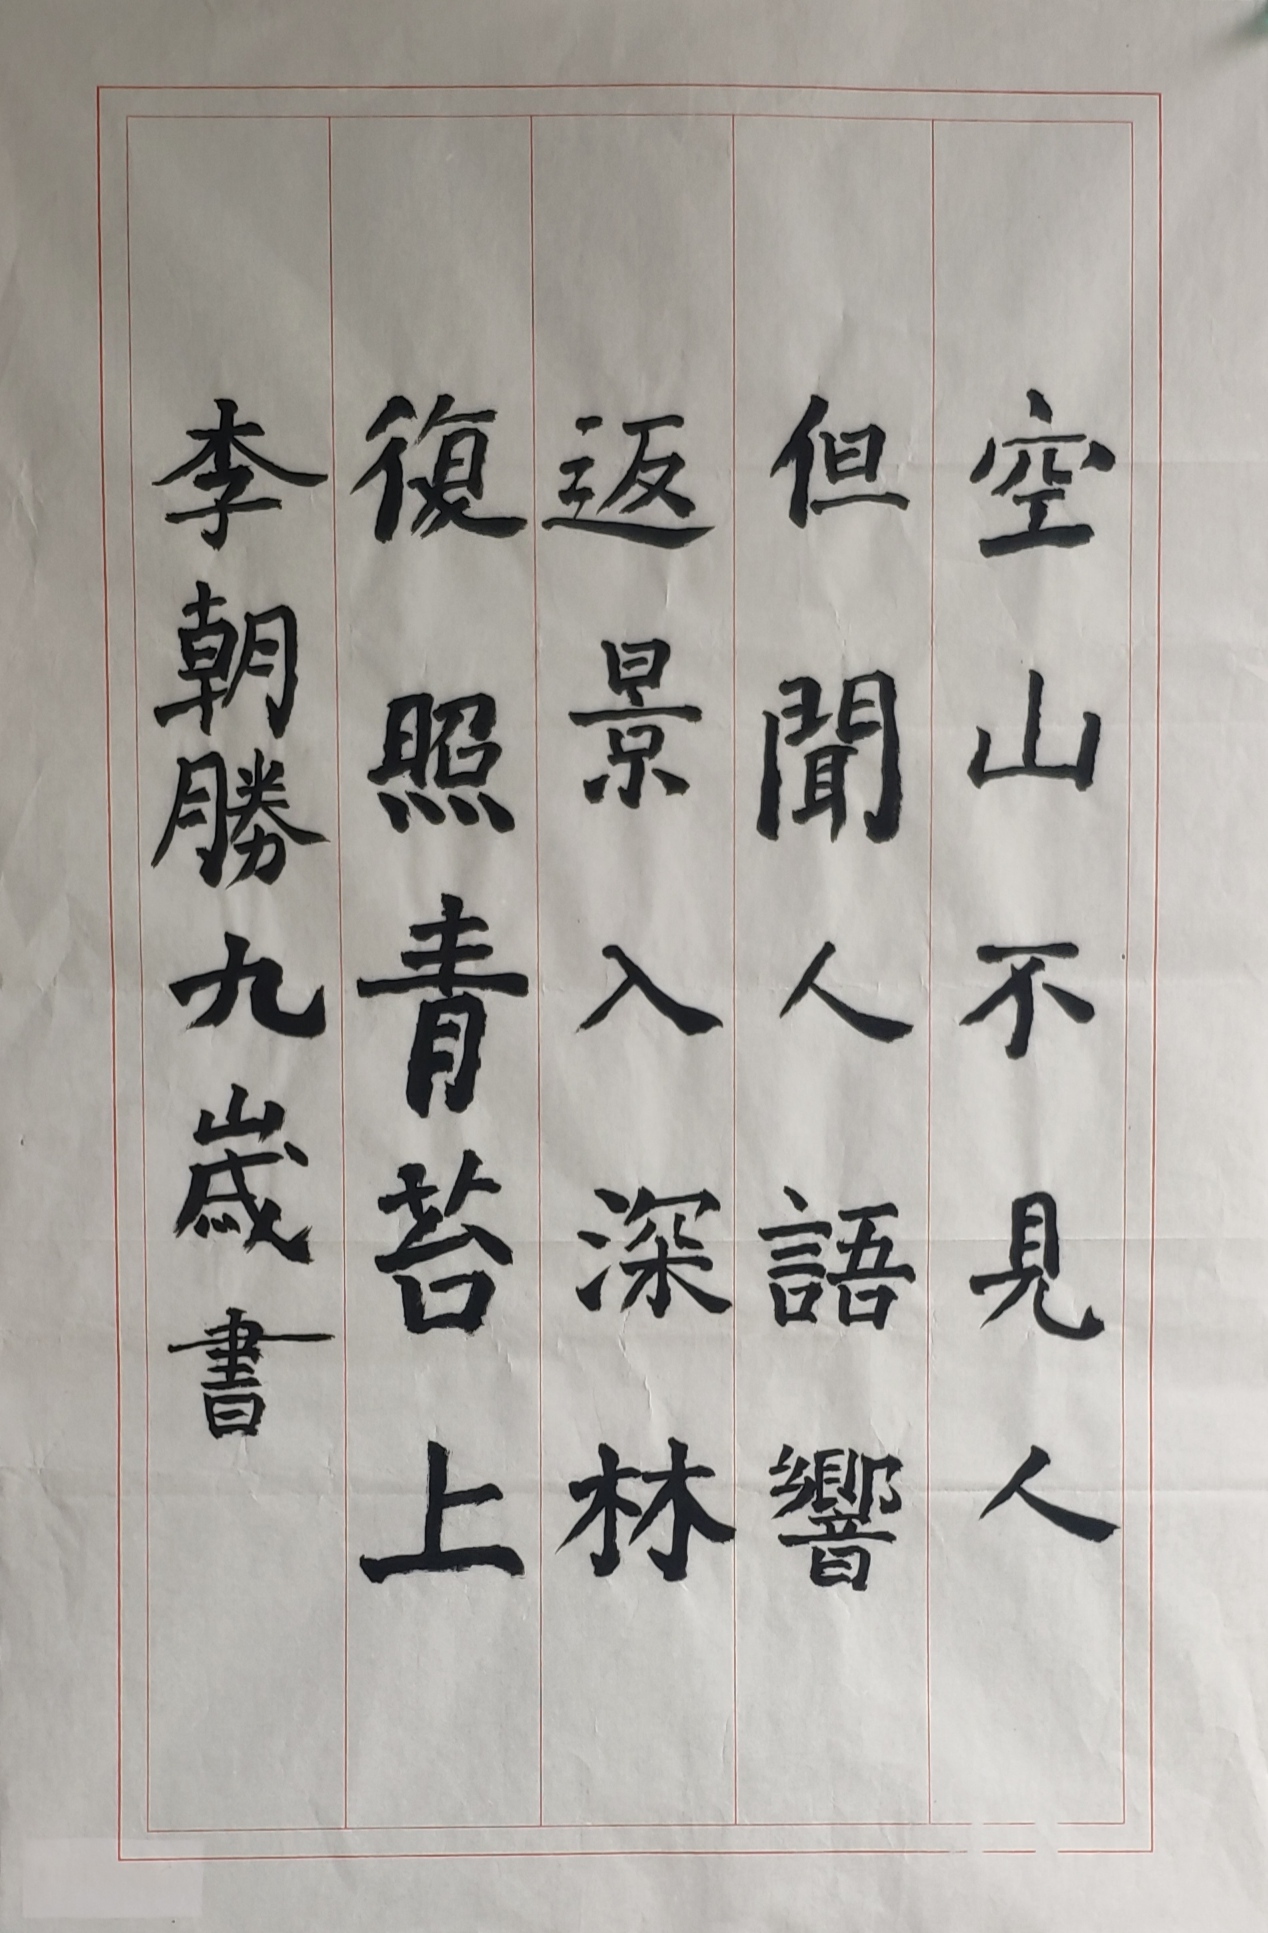 空山不見人
但聞人語響
返景入深林
復照青苔上
李朝勝九歲書